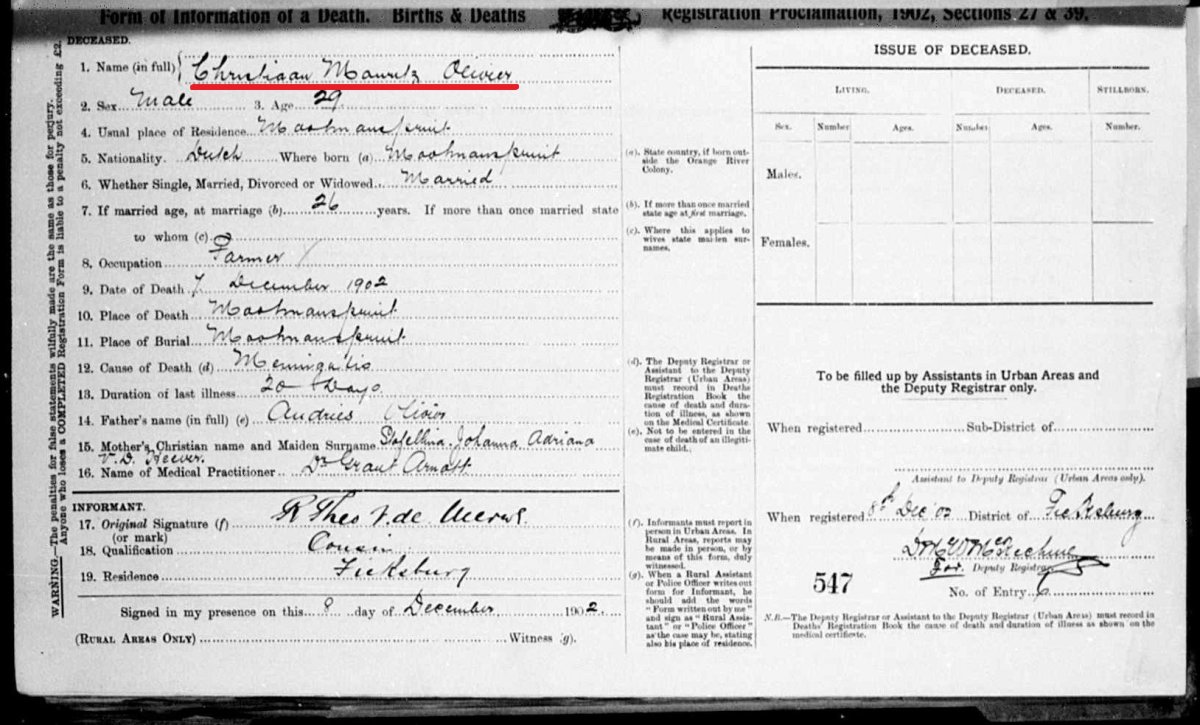 Form of Information of a Death. Births & Deaths Registration Proclamation, 1902, Sections 27 & 39.
WARNING.—The penalties for false statements wilfully made are the same as those for perjury.
Anyone who loses a COMPLETED Registration Form is liable to a penalty not exceeding £2.
DECEASED.
1. Name (in full) Christiaan Mauritz Olivier
2. Sex Male 3. Age 29
4. Usual place of Residence Mootmanspruit
5. Nationality. Dutch Where born (a) Mootmanspruit
6. Whether Single, Married, Divorced or Widowed Married
7. If married age, at marriage (b) 26 years. If more than once married state
to whom (c)
8. Occupation Farmer
9. Date of Death 7 December 1902
10. Place of Death Mootmanspruit
11. Place of Burial Mootmanspruit
12. Cause of Death (d) Meningatis
13. Duration of last illness 20 Days
14. Father's name (in full) (e) Andries Olivier
15. Mother's Christian name and Maiden Surname Johanna Adriana
V.D. Heever.
16. Name of Medical Practitioner Dr Grant Arnott
INFORMANT.
17. Original Signature (f) R Theo V. de Merwe
(or mark)
18. Qualification Cousin
19. Residence Ficksburg
Signed in my presence on this 8 day of December 1902.
(RURAL AREAS ONLY) Witness (g).
(a). State country, if born out-
side the Orange River
Colony.
(b). If more than once married
state age at first marriage.
(c). Where this applies to
wives state maiden sur-
names.
(d). The Deputy Registrar or
Assistant to the Deputy
Registrar (Urban Areas)
must record in Deaths
Registration Book the
cause of death and dura-
tion of illness, as shown
on the Medical Certificate.
(e). Not to be entered in the
case of death of an illegiti-
mate child.
(f). Informants must report in
person in Urban Areas. In
Rural Areas, reports may
be made in person, or by
means of this form, duly
witnessed.
(g). When a Rural Assistant
or Police Officer writes out
form for Informant, he
should add the words
"Form written out by me"
and sign as "Rural Assis-
tant" or "Police Officer"
as the case may be, stating
also his place of residence.
ISSUE OF DECEASED.
LIVING. DECEASED. STILLBORN.
Sex. Number Ages. Number Ages. Number.
Males.
Females.
To be filled up by Assistants in Urban Areas and
the Deputy Registrar only.
When registered Sub-District of
Assistant to Deputy Registrar (Urban Areas only).
When registered 8th Dec '02 District of Ficksburg
For Deputy Registrar
547 No. of Entry 6
N.B.—The Deputy Registrar or Assistant to the Deputy Registrar (Urban Areas) must record in
Deaths' Registration Book the cause of death and duration of illness as shown on the
medical certificate.